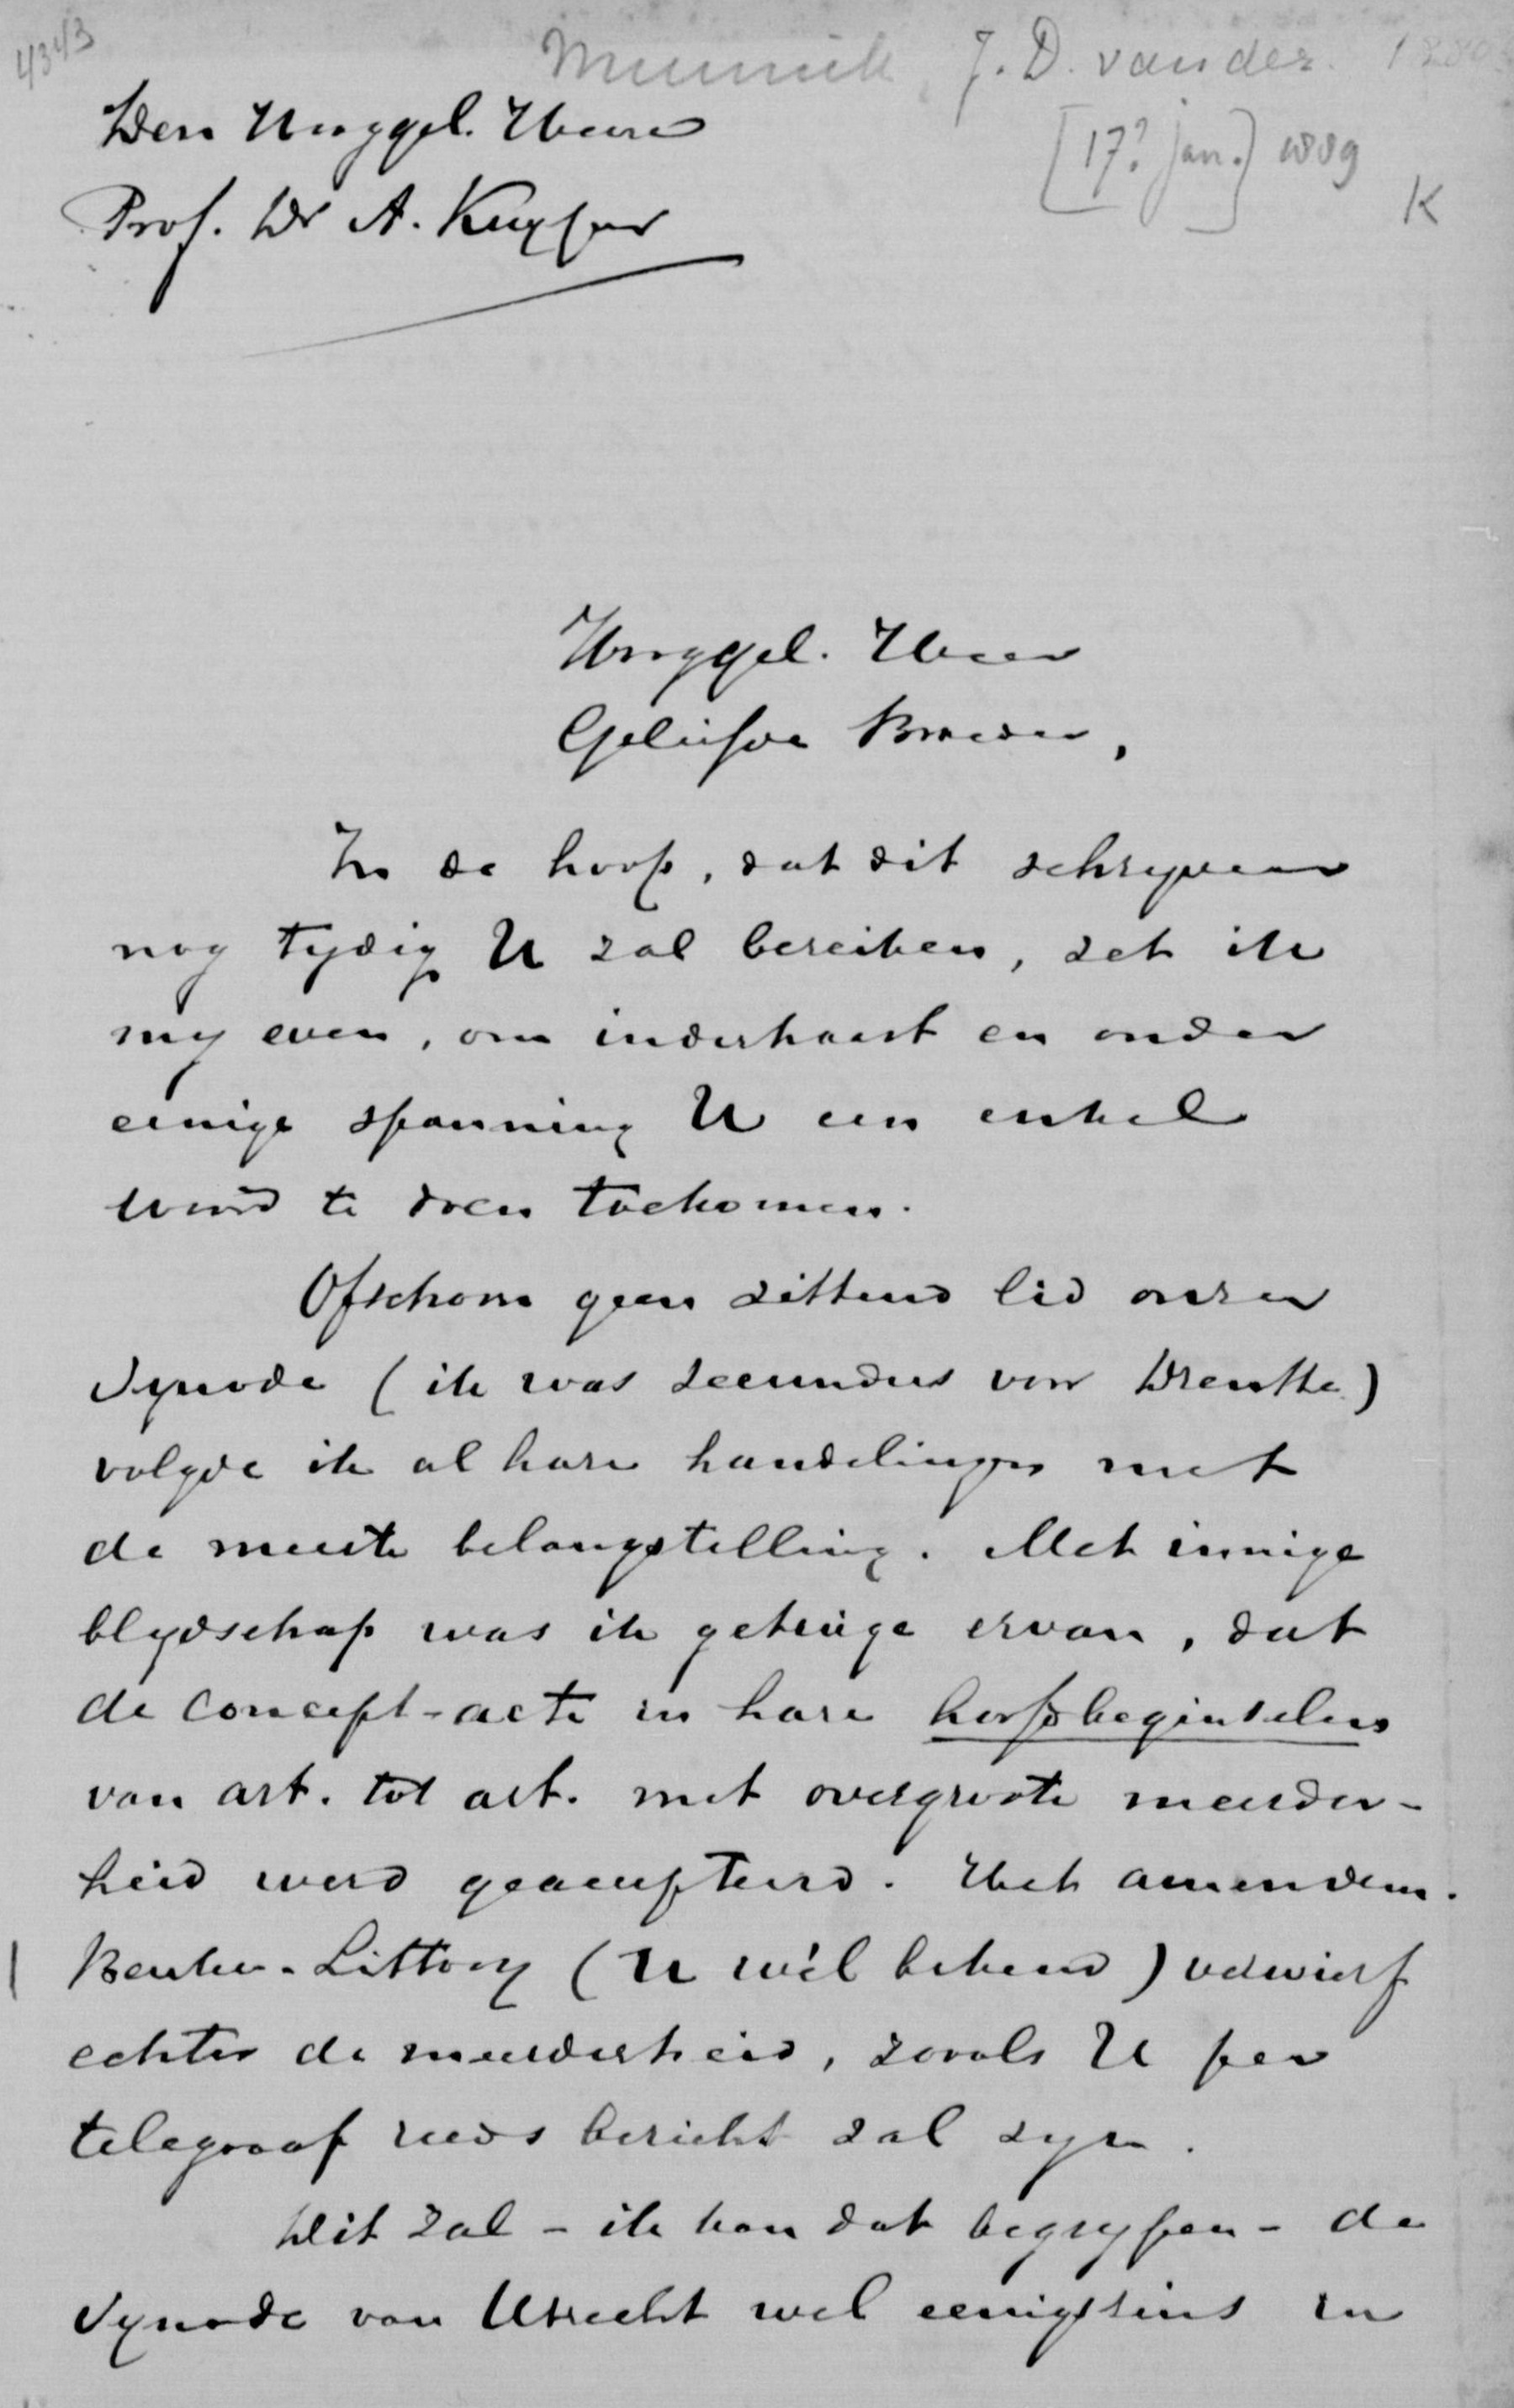 4343
Munnik, J. D. van der. 1889
[17? jan.] 1889
K
Den Hooggel. Heere
Prof. Dr A. Kuyper
Hooggel. Heer
Geliefde Broeder,
In de hoop, dat dit schryven
nog tydig U zal bereiken, zet ik
my even, om inderhaast en onder
eenige spanning U een enkel
woord te doen toekomen.
Ofschoon geen zittend lid onzer
Synode (ik was secundus voor Drenthe)
volgde ik al hare handelingen met
de meeste belangstelling. Met innige
blydschap was ik getuige ervan, dat
de concept-acte in hare hoofdbeginselen
van art. tot art. met overgroote meerder-
heid werd geaccepteerd. Het amendem.
Beuker-Littooy (U wèl bekend) verwierf
echter de meerderheid, zooals U per
telegraaf reeds bericht zal zyn.
Dit zal - ik kan dat begrypen - de
Synode van Utrecht wel eenigszins in